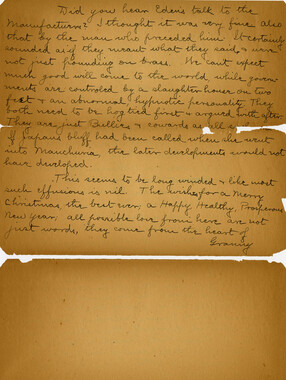 Did you hear Edens talk to the
Manufacturers? I thought it was very fine also
that by the man who preceded him. It certainly
sounded as if they meant what they said, & were
not just pounding on brass. We can't expect
much good will come to the world while govern-
ments are controled by a slaughter house on two
feet & an abnormal, hypnotic personality. They
both need to be hog tied first & argued with after.
They are just Bullies & cowards as all
if Japans bluff had been called when she went
into Manchuria, the later developments would not
have developed.
This seems to be long winded & like most
such effusions is nil. The wishes for a Merry
Christmas the best ever, a Happy Healthy, Prosperous
New Year, all possible love from here are not
just words, they come from the heart of
Granny